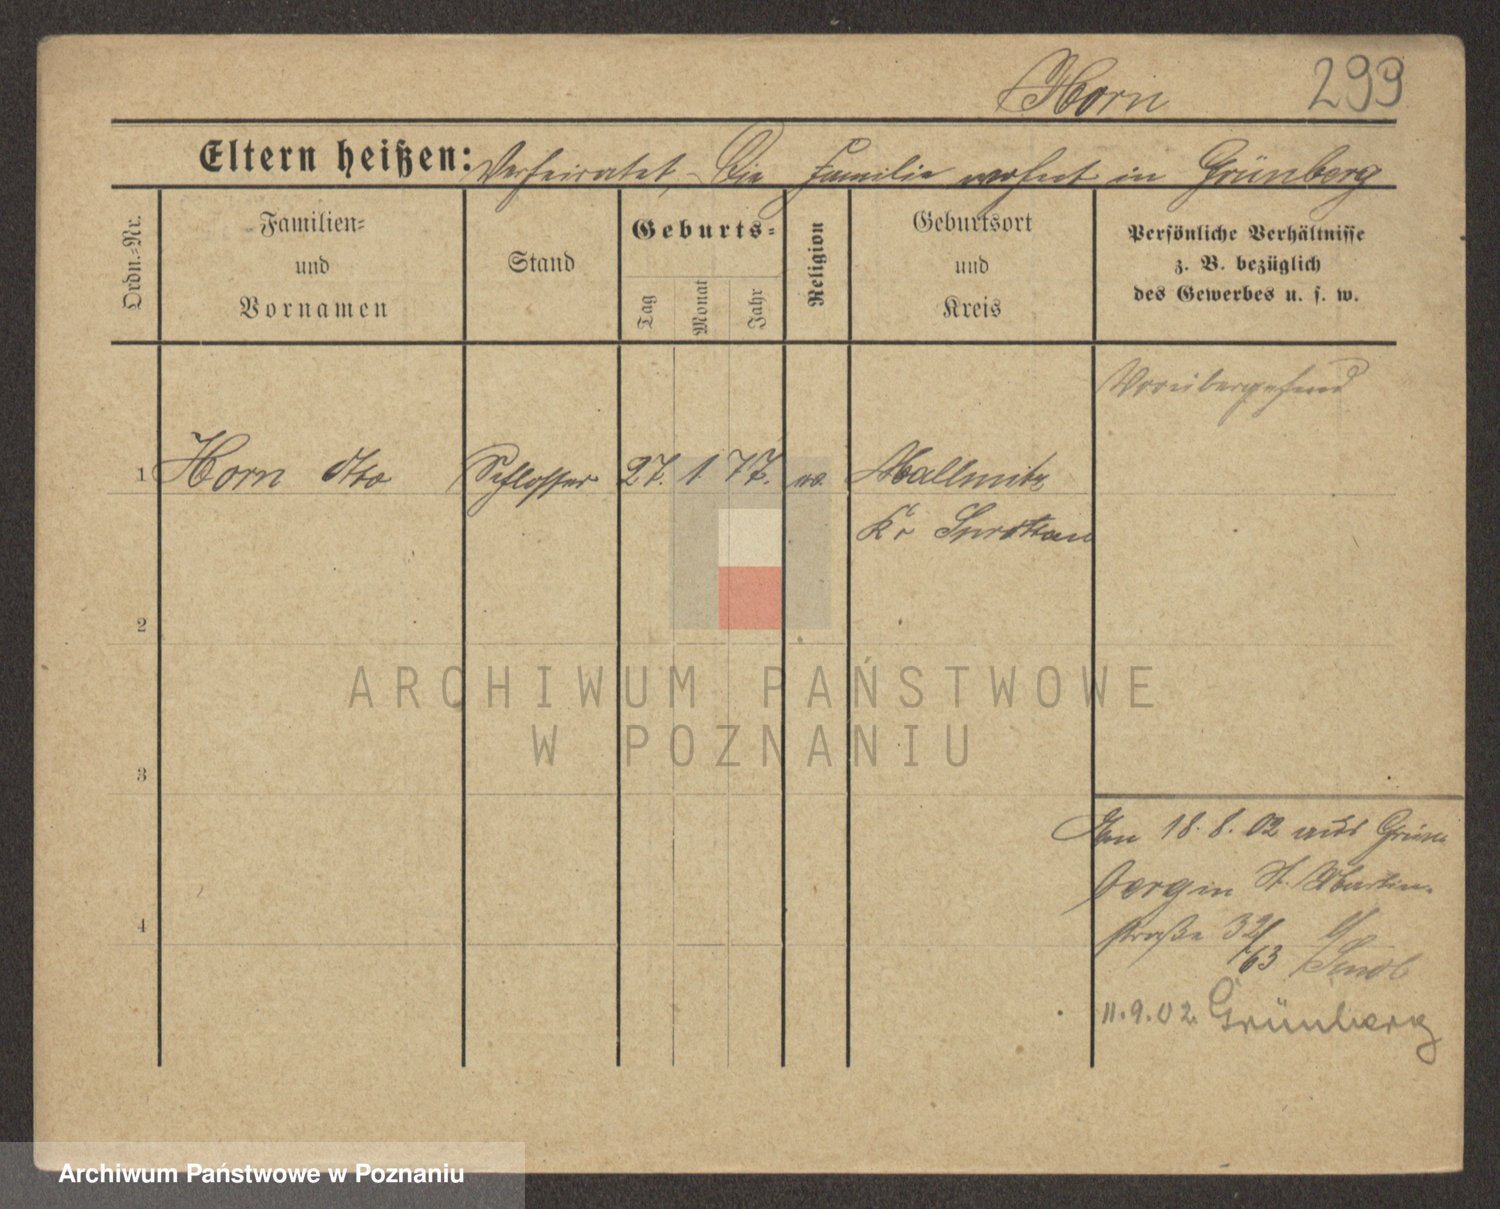 Horn
299
Eltern heißen: Verheiratet, Die Familie wohnt in Grünberg
Ordn.-Nr.
Familien- und Vornamen
Stand
Geburts-
Tag
Monat
Jahr
Religion
Geburtsort und Kreis
Persönliche Verhältnisse
z. B. bezüglich
des Gewerbes u. s. w.
Vorübergehend
1 Horn Otto Schlosser 27. 1. 77. ev. Mallmitz
Kr Sprottau
2
3
4
Am 18. 8. 02 aus Grün
berg in St. Martin-
straße 32/
63
11.9.02. Grünberg
ARCHIWUM PAŃSTWOWE
W POZNANIU
Archiwum Państwowe w Poznaniu